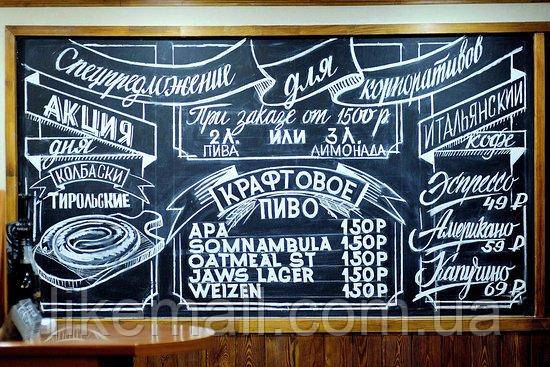 Спецпредложение для корпоративов
При заказе от 1500 р
2 Л. ИЛИ 3 Л.
ПИВА ЛИМОНАДА
АКЦИЯ
дня
КОЛБАСКИ
ТИРОЛЬСКИЕ
КРАФТОВОЕ
ПИВО
APA 150 Р
SOMNAMBULA 150 Р
OATMEAL ST 150 Р
JAWS LAGER 150 Р
WEIZEN 150 Р
ИТАЛЬЯНСКИЙ
кофе
Эспрессо
49 ₽
Американо
59 ₽
Капучино
69 ₽
likemall.com.ua